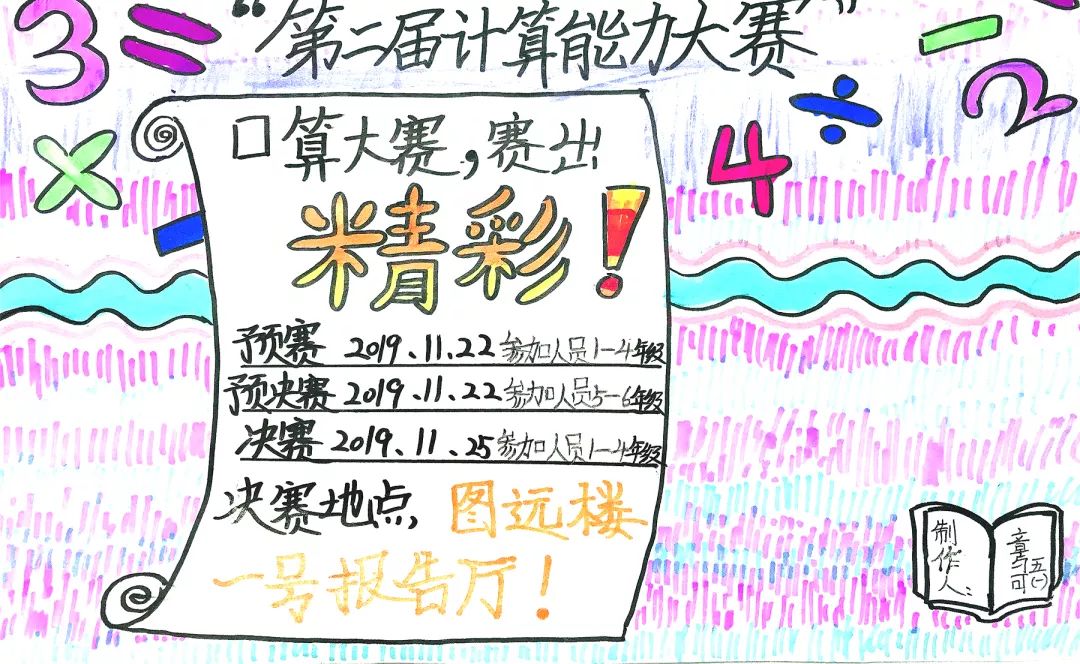 “第二届计算能力大赛”
3 = ÷ - 2
× 4
口算大赛,赛出
精彩!
预赛 2019.11.22 参加人员1-4年级
预决赛 2019.11.22 参加人员5-6年级
决赛 2019.11.25 参加人员1-4年级
决赛地点 图远楼
一号报告厅!
制作人:
章可
五(一)